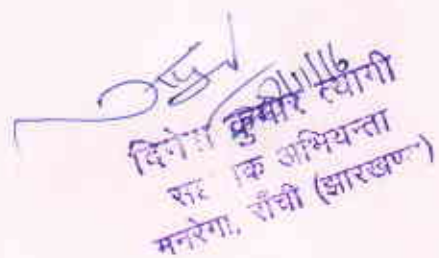 दिनेश कुमार त्यागी
सहायक अभियन्ता
मनरेगा, राँची (झारखण्ड)